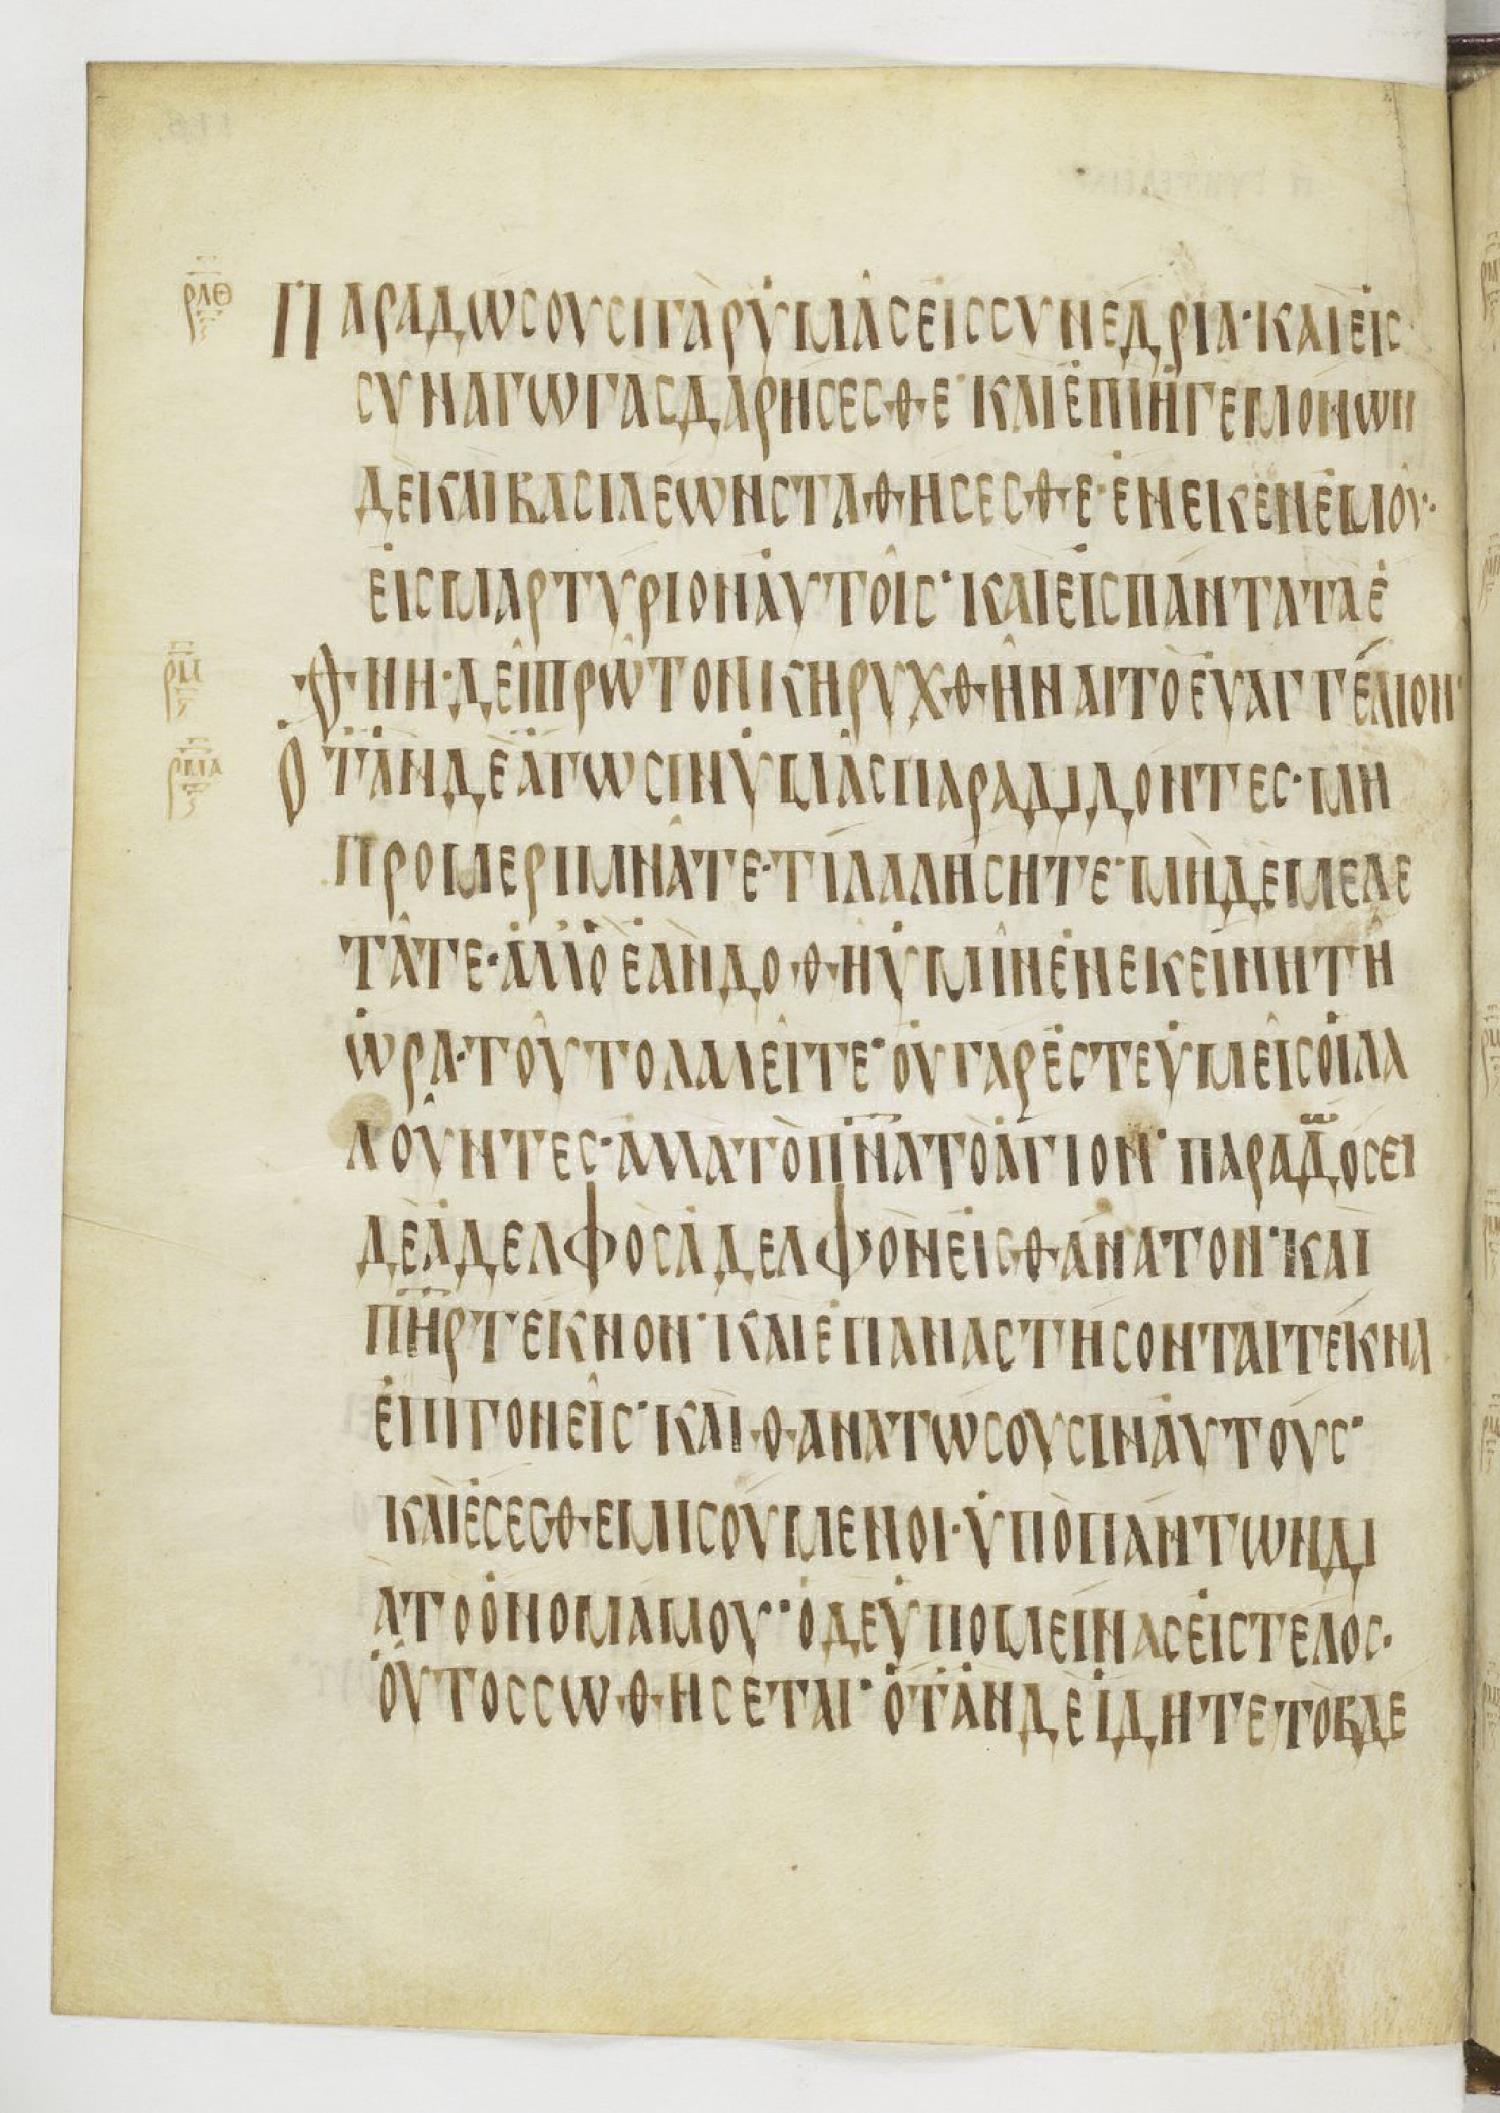 ρλθ Παραδώσουσι γὰρ ὑμᾶς εἰς συνέδρια· καὶ εἰς
συναγωγὰς δαρήσεσθε· καὶ ἐπὶ ἡγεμόνων
δὲ καὶ βασιλέων σταθήσεσθε· ἕνεικεν ἐμοῦ·
εἰς μαρτύριον αὐτοῖς· καὶ εἰς πάντα τὰ ἔ
ρμ θνη· δεῖ πρῶτον κηρυχθῆναι τὸ εὐαγγέλιον·
ρμα Ὅταν δὲ ἄγωσιν ὑμᾶς παραδιδόντες· μὴ
προμεριμνᾶτε· τί λαλήσητε· μηδὲ μελε
τᾶτε· ἀλλ' ὃ ἐὰν δοθῇ ὑμῖν ἐν ἐκείνῃ τῇ
ὥρᾳ· τοῦτο λαλεῖτε· οὐ γάρ ἐστε ὑμεῖς οἱ λα
λοῦντες· ἀλλὰ τὸ πνα τὸ ἅγιον· παραδόσει
δὲ ἀδελφὸς ἀδελφὸν εἰς θάνατον· καὶ
πηρ τέκνον· καὶ ἐπαναστήσονται τέκνα
ἐπὶ γονεῖς· καὶ θανατώσουσιν αὐτούς·
καὶ ἔσεσθε μισούμενοι· ὑπὸ πάντων δι
ὰ τὸ ὄνομά μου· ὁ δὲ ὑπομείνας εἰς τέλος·
οὗτος σωθήσεται· ὅταν δὲ ἴδητε τὸ βδε